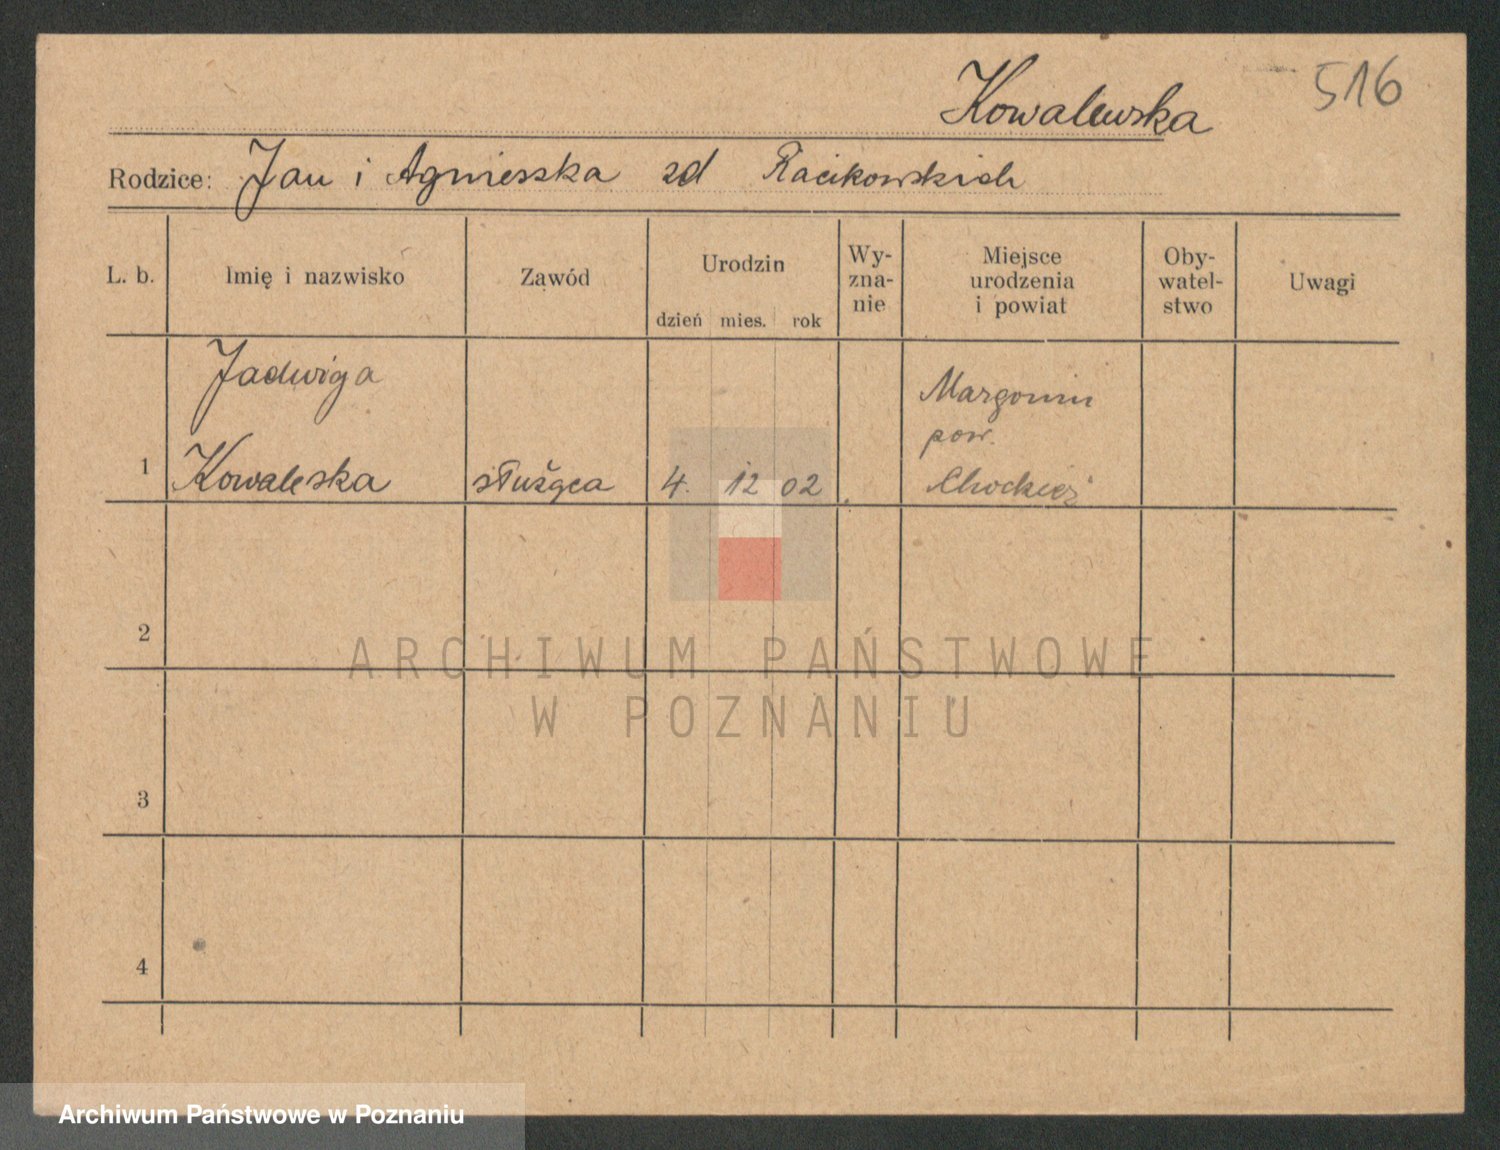 516
Kowalewska
Rodzice: Jan i Agnieszka zd Racikowskich
L. b.
Imię i nazwisko
Zawód
Urodzin
dzień mies. rok
Wy-
zna-
nie
Miejsce
urodzenia
i powiat
Oby-
watel-
stwo
Uwagi
1
Jadwiga
Kowaleska
służąca
4. 12 02
Margonin
pow.
Chodzież
2
3
4
ARCHIWUM PAŃSTWOWE
W POZNANIU
Archiwum Państwowe w Poznaniu